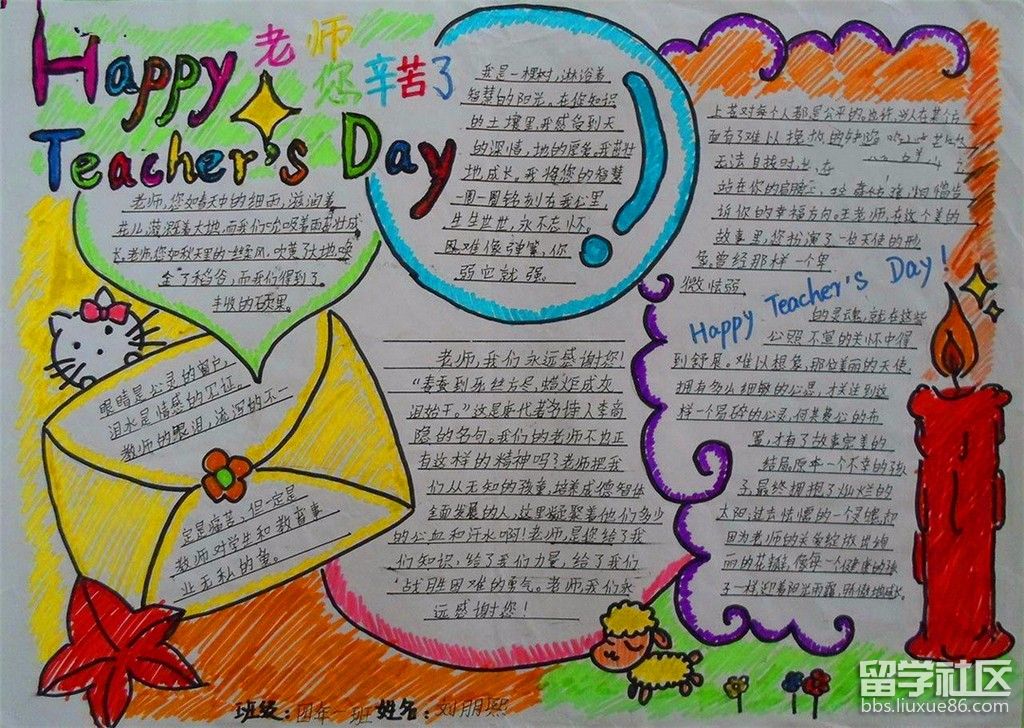 Happy
老师
您辛苦了
Teacher's Day
老师,您如春天中的细雨,滋润着
花儿,滋润着大地,而我们
长,老师,您如秋天里的一丝柔风,吹黄了大地,唤
了稻谷,而我们得到了
丰收的硕果。
我是一棵树,淋浴着
智慧的阳光,在您知识
的土壤里,我感受到天
的深情,地的厚爱,我茁壮
地成长,我将您的智慧
一圈一圈铭刻在我心里,
生生世世,永不忘怀。
困难像弹簧,你
弱它就强。
眼睛是心灵的窗户,
泪水是情感的见证。
教师的眼泪,流泻的不一
定是痛苦,但一定是
教师对学生和教育事
业无私的鱼。
老师,我们永远感谢您!
“春蚕到死丝方尽,蜡炬成灰
泪始干。”这是唐代著名诗人李商
隐的名句。我们的老师不也正
有这样的精神吗?老师把我
们从无知的孩童,培养成德智体
全面发展的人,这里凝聚着他们多少
的心血和汗水啊!老师,是您给了我
们知识,给了我们力量,给了我们
战胜困难的勇气。老师,我们永
远感谢您!
上苍对每个人都是公平的。也许,别人在某个方
面有了难以挽救的缺陷
无法自拔时,上
站在你的肩膀上,
诉你的幸福方向。王老师,在这个美的
故事里,您扮演了一名天使的形
象。曾经那样一个卑
微怯弱
Happy Teacher's Day!
的灵魂,就在这些
心照不宣的关怀中得
到舒展。难以想象,那位美丽的天使,
拥有多么细腻的心思,才注意到这
样一个易碎的心灵,何其费心的布
置,才有了故事完美的
结局。原本一个不幸的孩
子,最终拥抱了灿烂的
太阳,过去怯懦的一个灵魂,却
因为老师的关爱绽放出绚
丽的花瓣,像每一个健康的孩
子一样迎着阳光雨露,骄傲地成长。
班级:四年一班 姓名:刘朋熙
留学社区
bbs.liuxue86.com